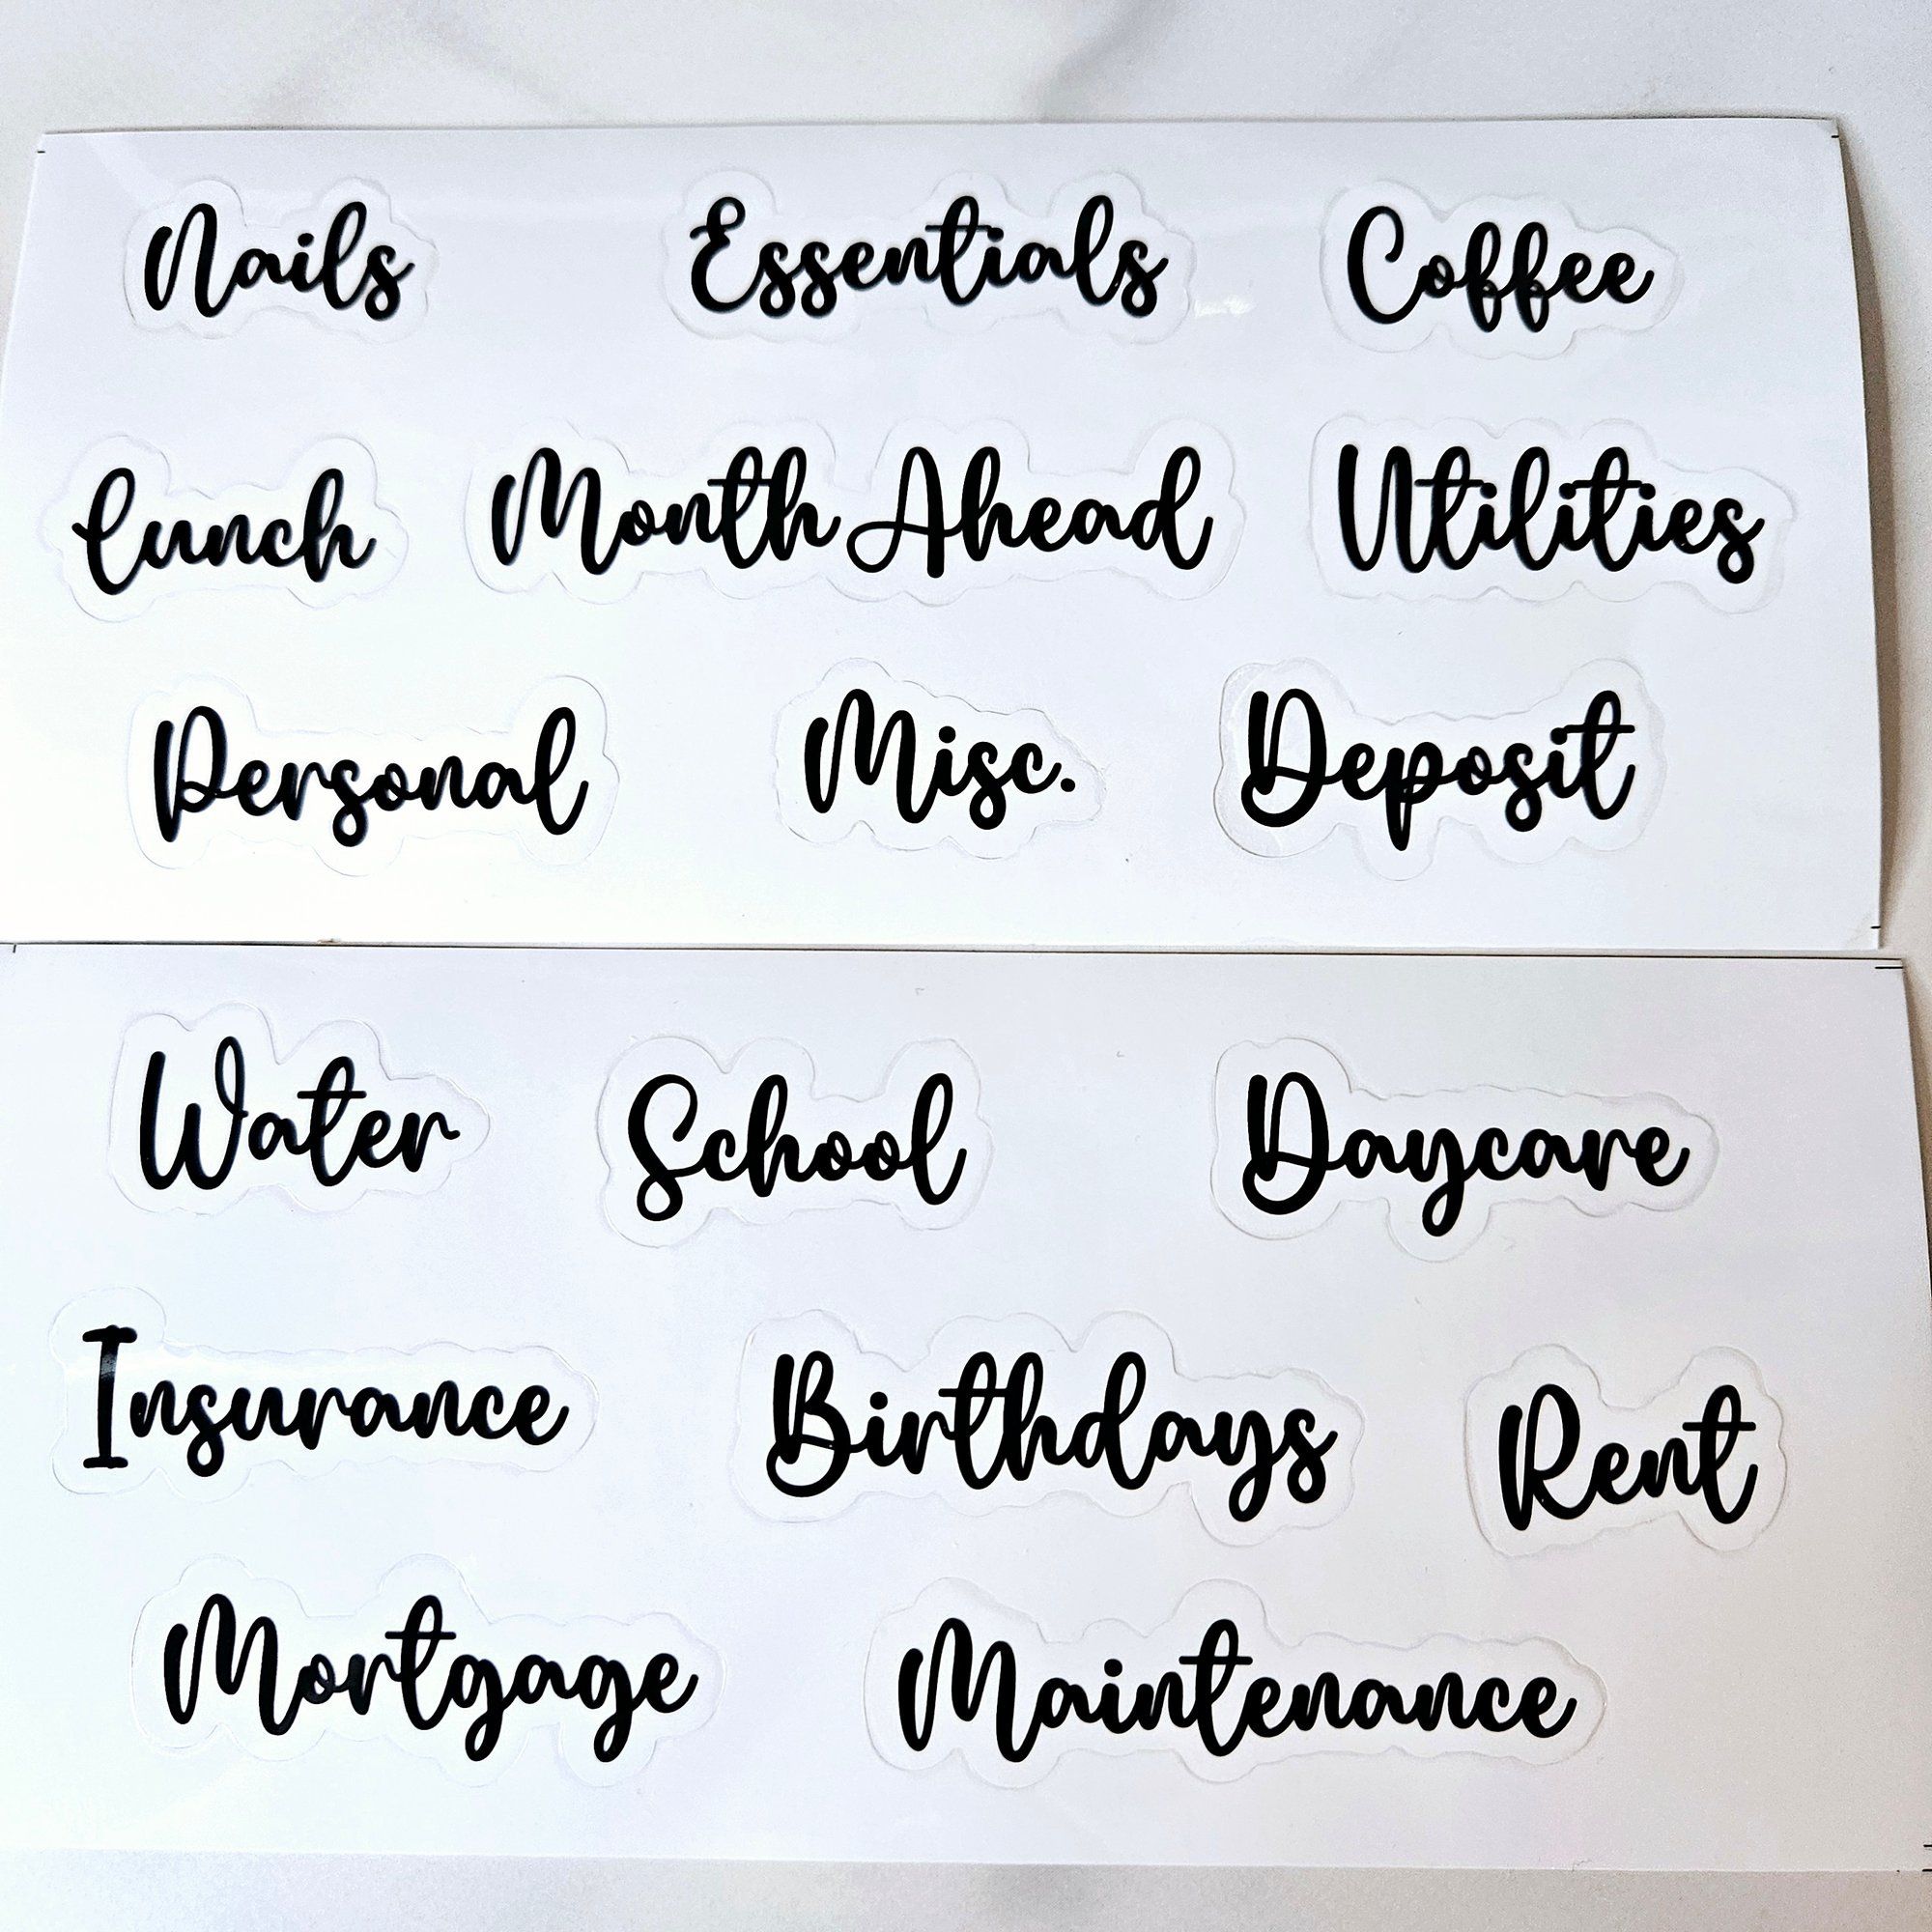 Nails Essentials Coffee
Lunch Month Ahead Utilities
Personal Misc. Deposit
Water School Daycare
Insurance Birthdays Rent
Mortgage Maintenance